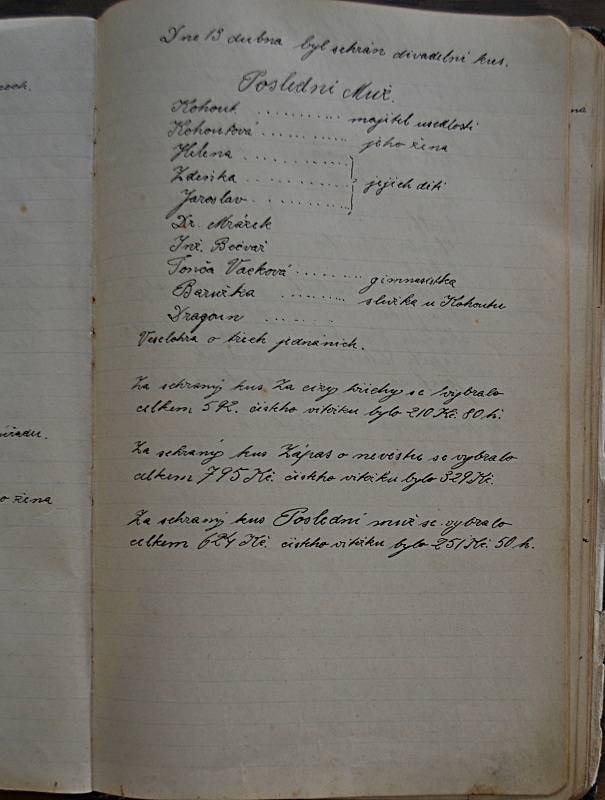 roch.
úřadu.
o žena
na
Dne 13 dubna byl sehrán divadelní kus.
Poslední Muž.
Kohout .......... majitel usedlosti
Kohoutová .......... jeho žena
Helena ..........
Zdeňka .......... jejich děti
Jaroslav ..........
Dr. Mrázek
Inž. Bečvář
Tonča Vacková .......... gimnasistka
Baruška .......... služka u Kohoutu
Dragoun ..........
Veselohra o třech jednáních.
Za sehraný kus Za cizy hříchy se vybralo
celkem 592. čistho vitěžku bylo 210 Kč. 80 h.
Za sehraný kus Zápas o nevěstu se vybralo
celkem 795 Kč. čistho vitěžku bylo 329 Kč.
Za sehraný kus Poslední muž se vybralo
celkem 624 Kč. čistho vitěžku bylo 251 Kč. 50 h.